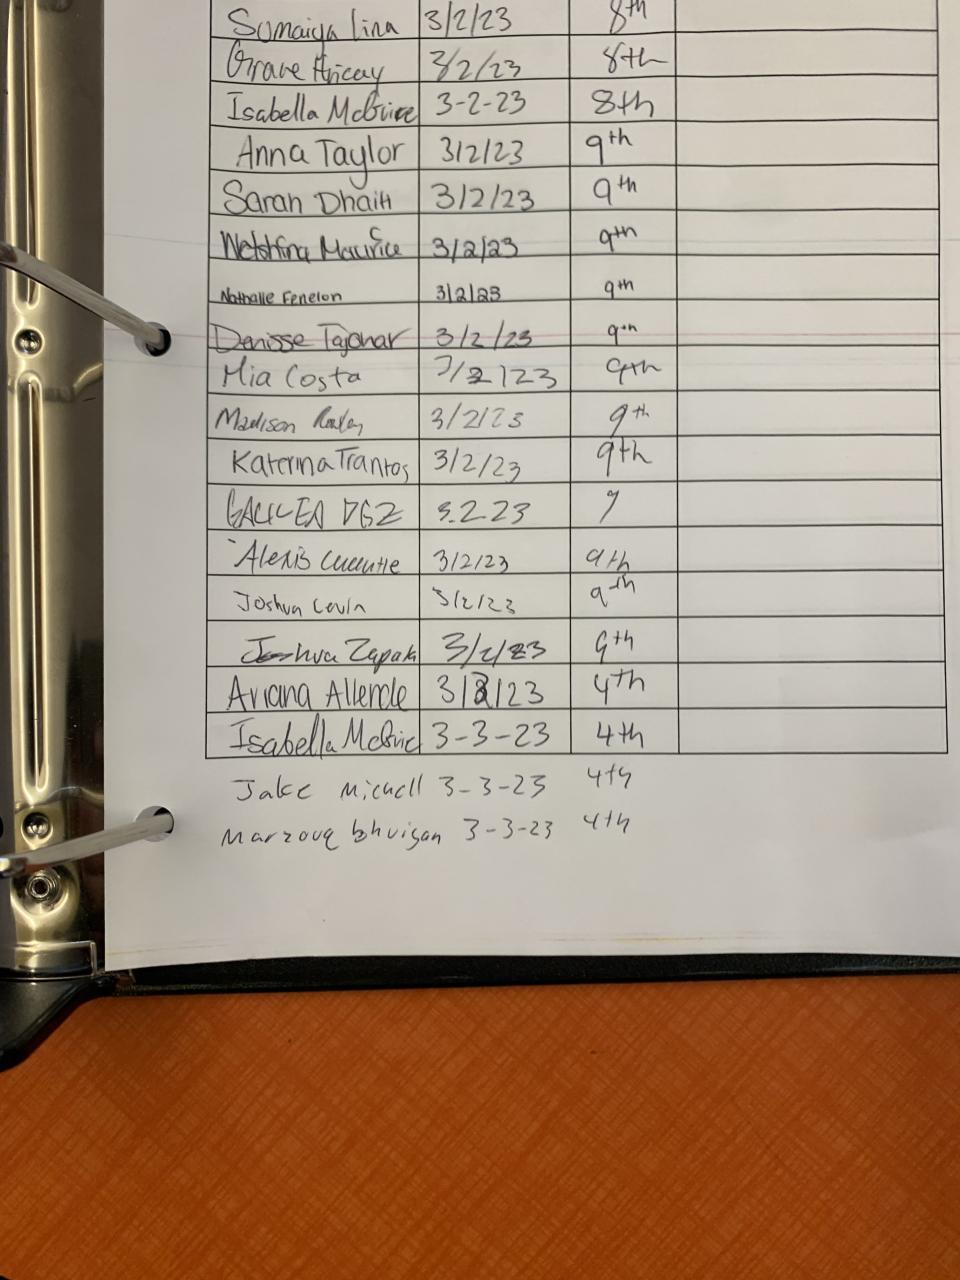 Sumaiya Lina 3/2/23 8th
3/2/23 8th
Isabella McGuire 3-2-23 8th
Anna Taylor 3/2/23 9th
Sarah Dhaiti 3/2/23 9th
Maurice 3/2/23 9th
Nathalie Fenelon 3/2/23 9th
Denisse 3/2/23 9th
Mia Costa 3/2/23 9th
Madison 3/2/23 9th
Katerina Trantos 3/2/23 9th
3.2.23 9
Alexis 3/2/23 9th
Joshua Levin 3/2/23 9th
Joshua Zapata 3/2/23 9th
Ariana Allende 3/3/23 4th
Isabella McGuire 3-3-23 4th
Jake Michell 3-3-23 4th
Marzouq bhuiyan 3-3-23 4th